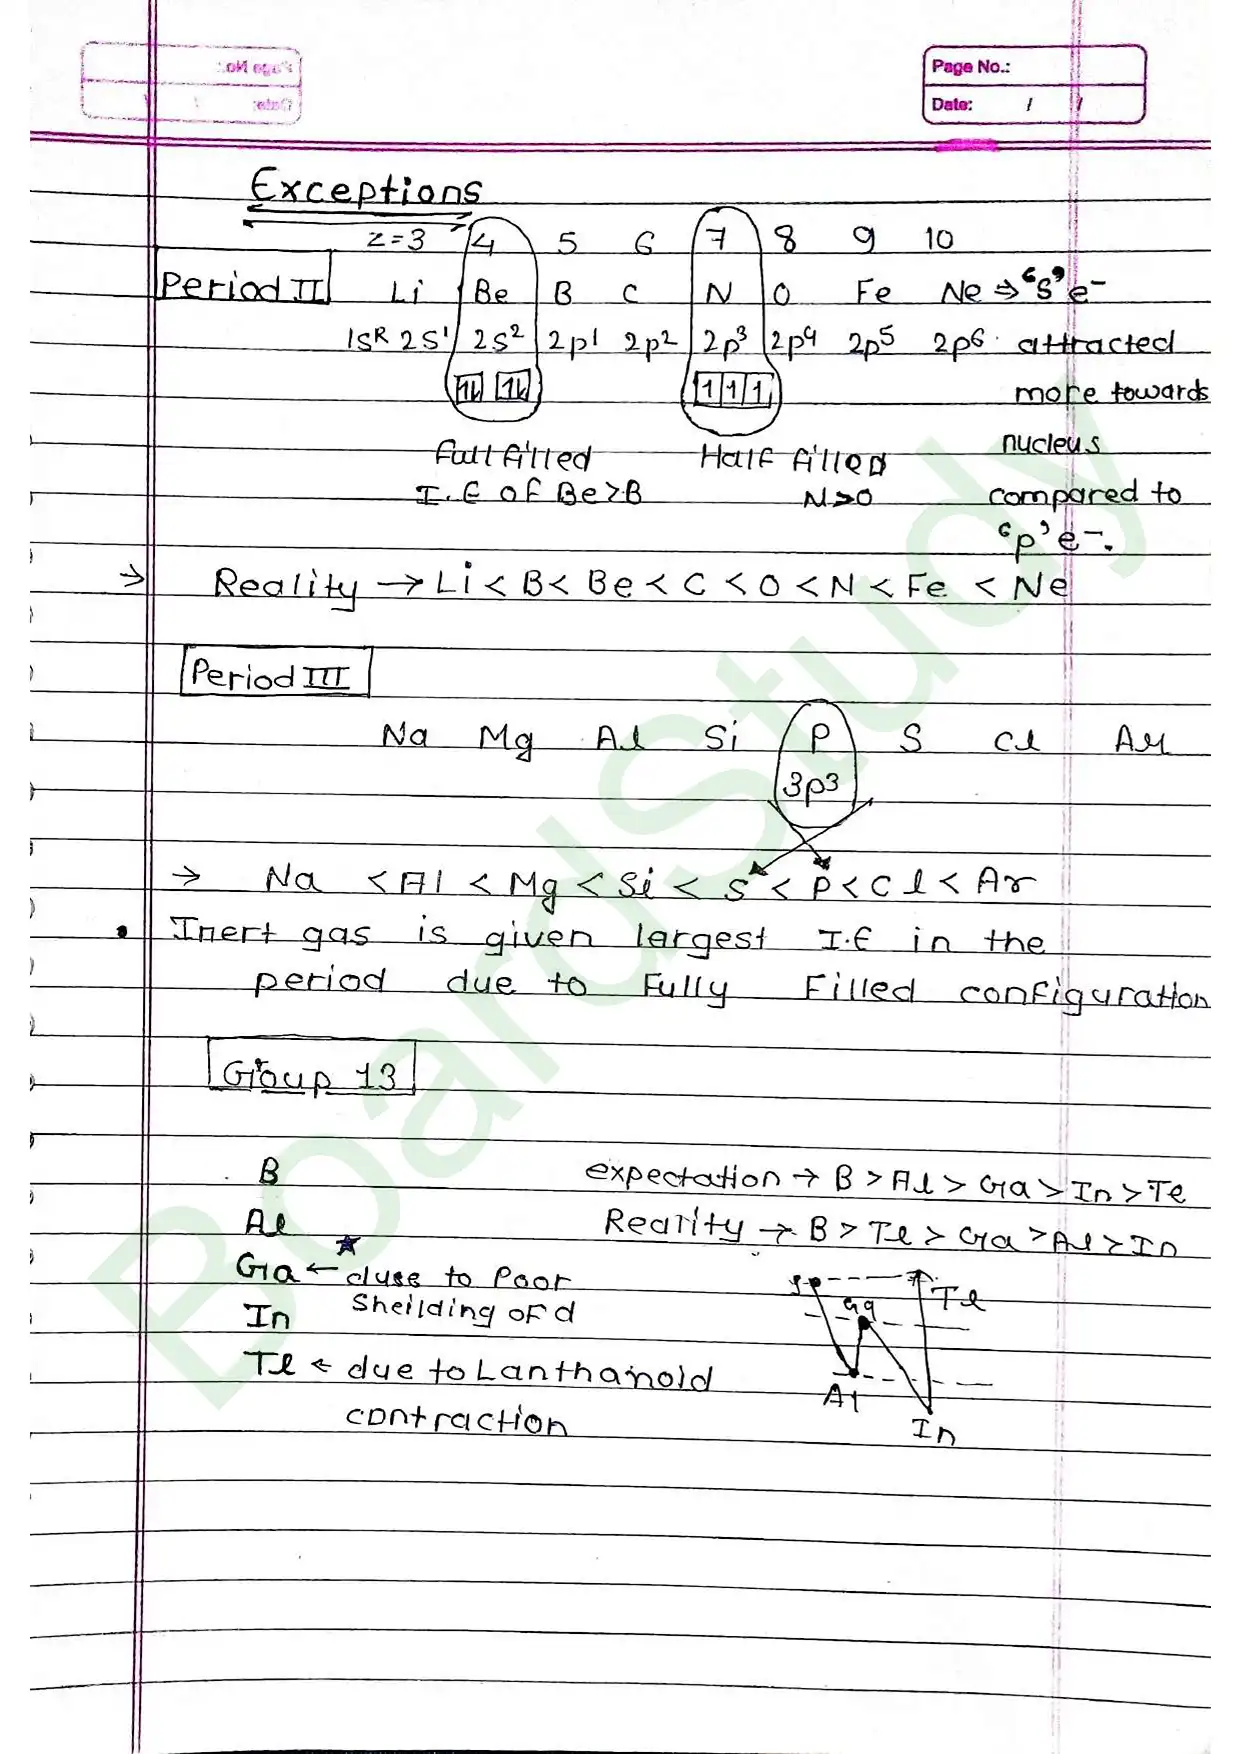 Page No.:
Date: / /
Exceptions
z=3 4 5 6 7 8 9 10
Period II Li Be B C N O Fe Ne ⇒ "S" e⁻
1S² 2S¹ 2S² 2p¹ 2p² 2p³ 2p⁴ 2p⁵ 2p⁶ attracted
1 1 1 more towards
Full filled Half filled nucleus
I.E of Be>B N>O compared to
'p' e⁻.
→ Reality → Li < B < Be < C < O < N < Fe < Ne
Period III
Na Mg Al Si P S Cl Ar
3p³
→ Na < Al < Mg < Si < S < P < Cl < Ar
• Inert gas is given largest I.E in the
period due to Fully Filled configuration
Group 13
B expectation → B > Al > Ga > In > Tl
Al Reality → B > Tl > Ga > Al > In
Ga ← duse to Poor
In Sheilding of d
Tl ← due to Lanthanoid
contraction
Ga Tl
Al In
BoardStudy